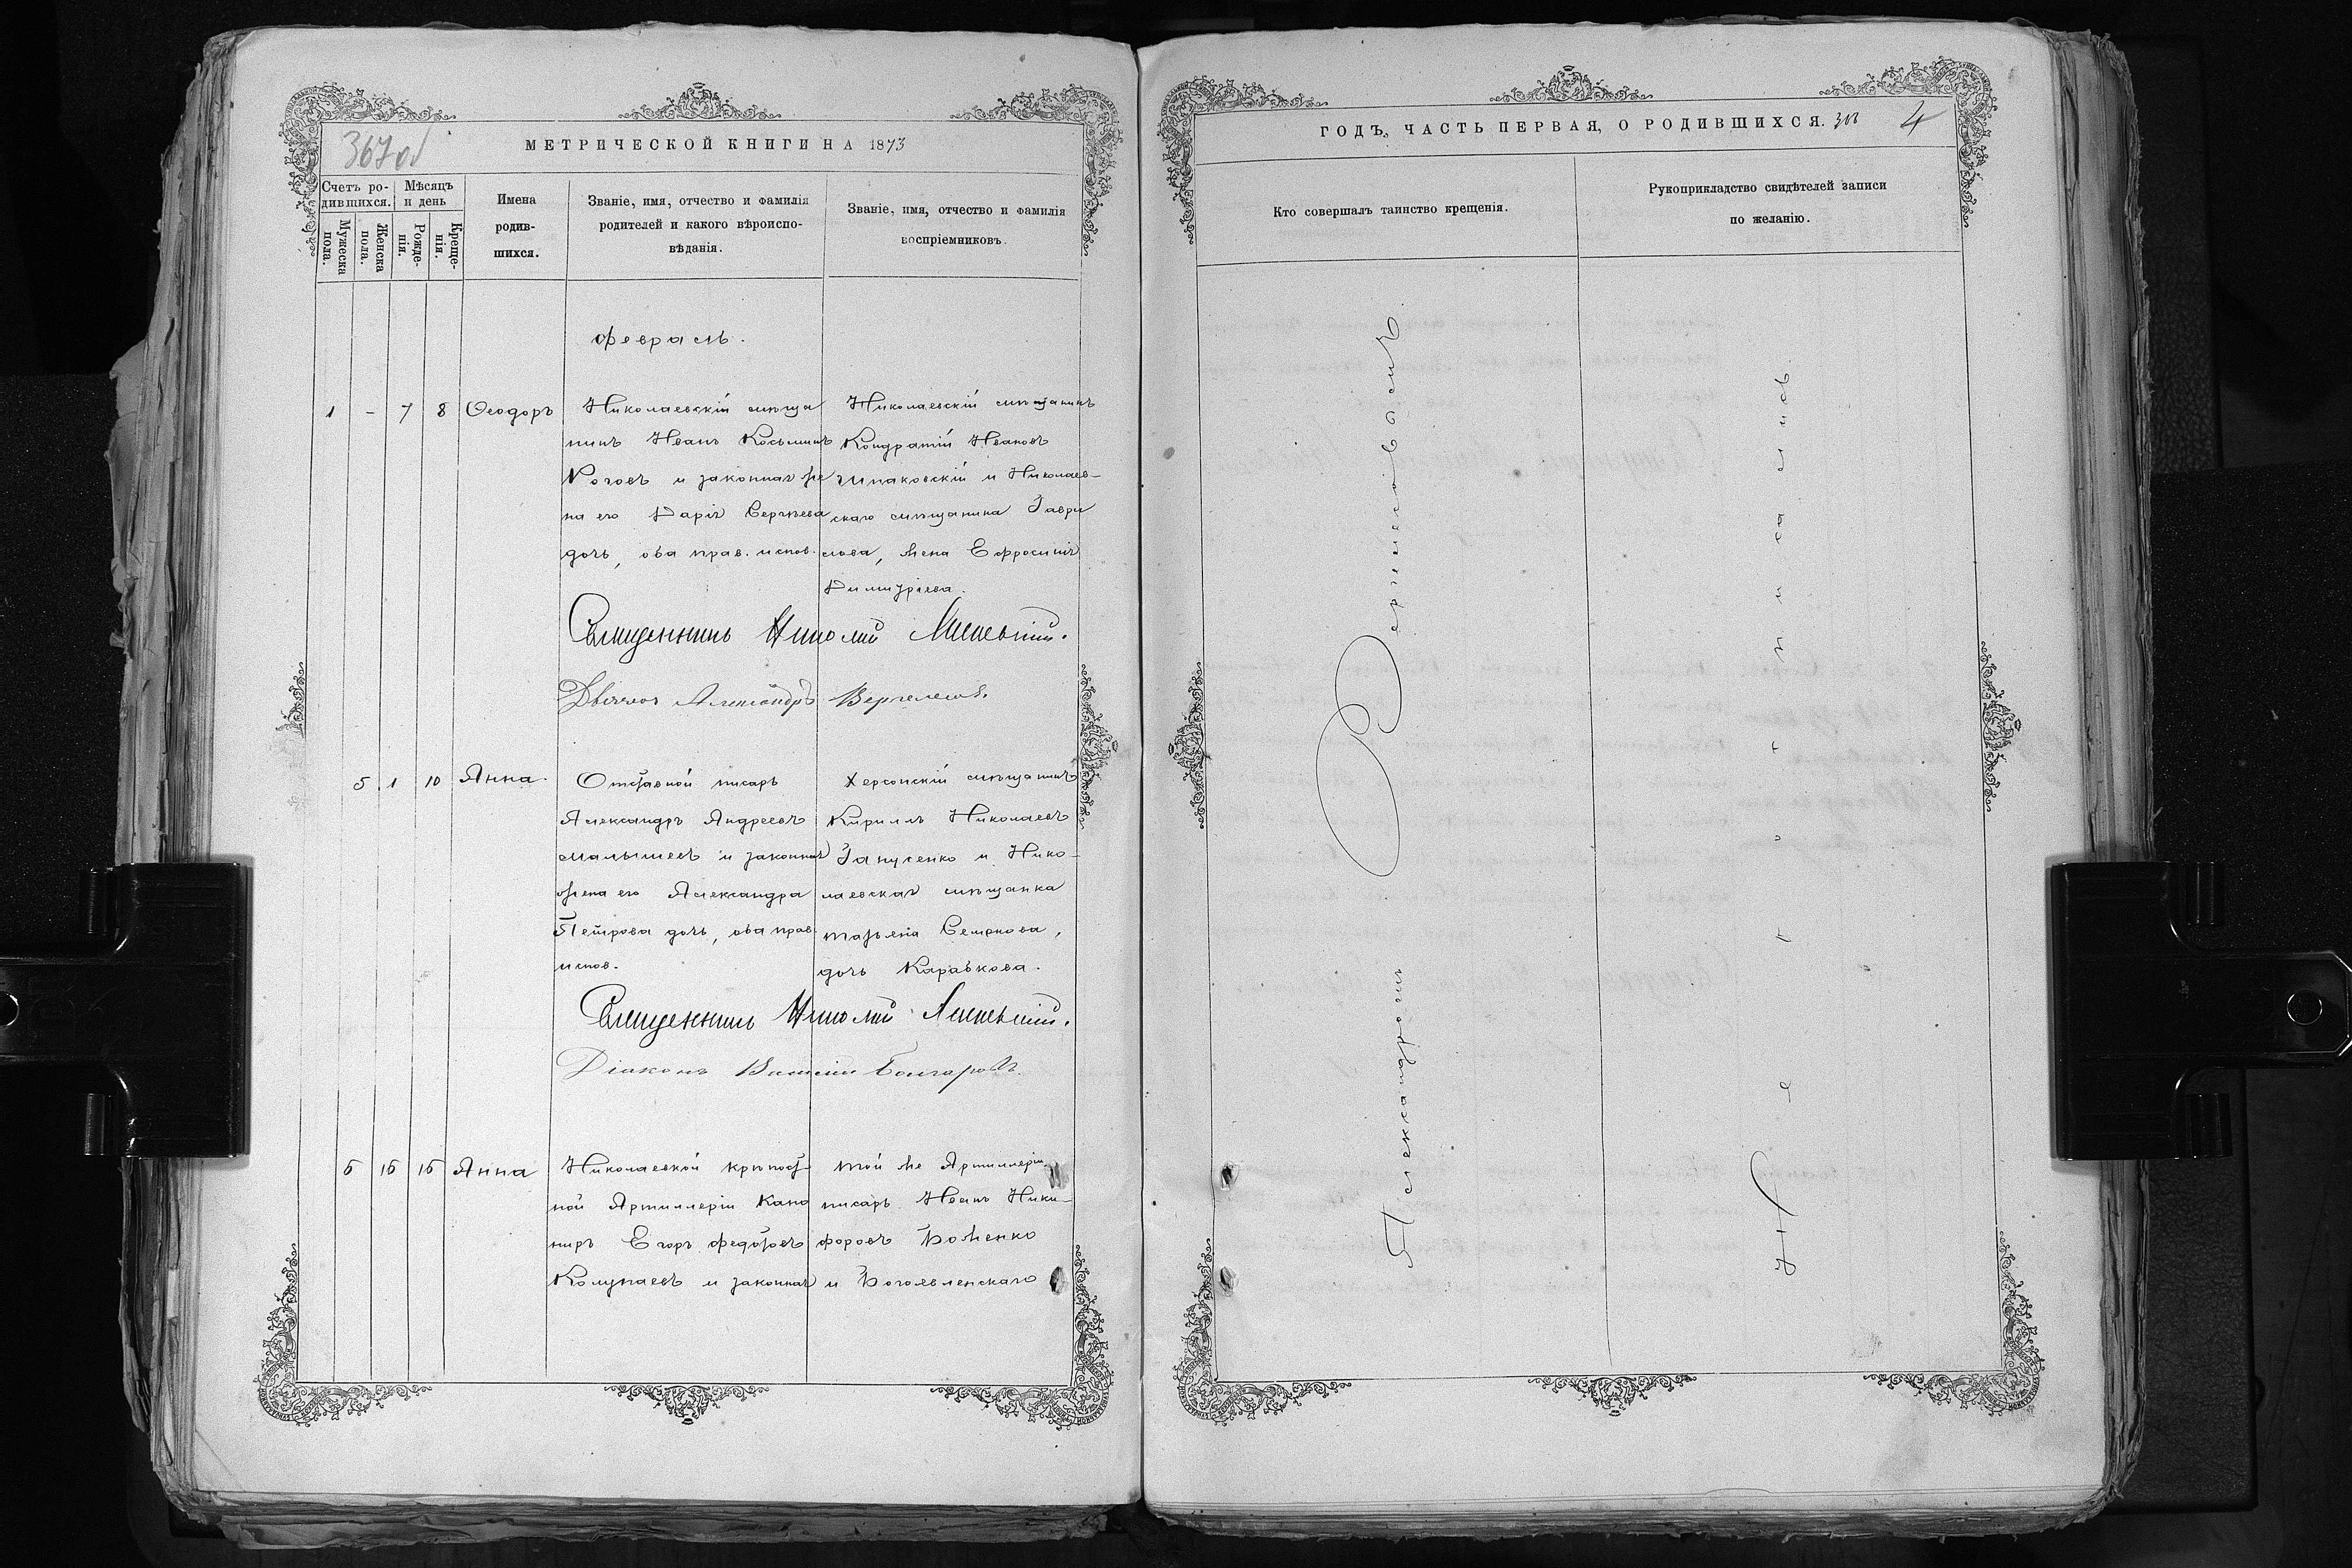 367об
МЕТРИЧЕСКОЙ КНИГИ НА 1873
Счетъ ро-
дившихся.
Мужеска
пола.
Женска
пола.
Мѣсяцъ
и день
Рожде-
нія.
Креще-
нія.
Имена
родив-
шихся.
Званіе, имя, отчество и фамилія
родителей и какого вѣроиспо-
вѣданія.
Званіе, имя, отчество и фамилія
воспріемниковъ.
Февраль.
1 - 7 8 Ѳеодоръ
Николаевскій мѣща
нинъ Иванъ Косьминъ
Роговъ и законная же
на его Дарія Сергѣева
дочь, оба прав. испов.
Николаевскій мѣщанинъ
Кондратій Ивановъ
и Николаев-
скаго мѣщанина Гаври
лова, жена Ефросинія
Димитріева.
Священникъ Николай
Александръ
5 1 10 Анна.
Отставной писарь
Александръ Андреевъ
Малышевъ и законная
жена его Александра
Петрова дочь, оба прав.
испов.
Херсонскій мѣщанинъ
Кириллъ Николаевъ
Ганусенко и Нико-
лаевская мѣщанка
Татьяна Семенова,
дочь Каравкова.
Священникъ Николай
Діаконъ Василій Болгаровъ.
6 15 15 Анна
Николаевской крѣпост-
ной Артиллеріи кано
ниръ Егоръ Федотовъ
Колупаевъ и законная
той же Артиллеріи
писарь Иванъ Ники-
форовъ Боженко
и Богоявленскаго
ГОДЪ, ЧАСТЬ ПЕРВАЯ, О РОДИВШИХСЯ.
4
Кто совершалъ таинство крещенія.
Рукоприкладство свидѣтелей записи
по желанію.
Александромъ